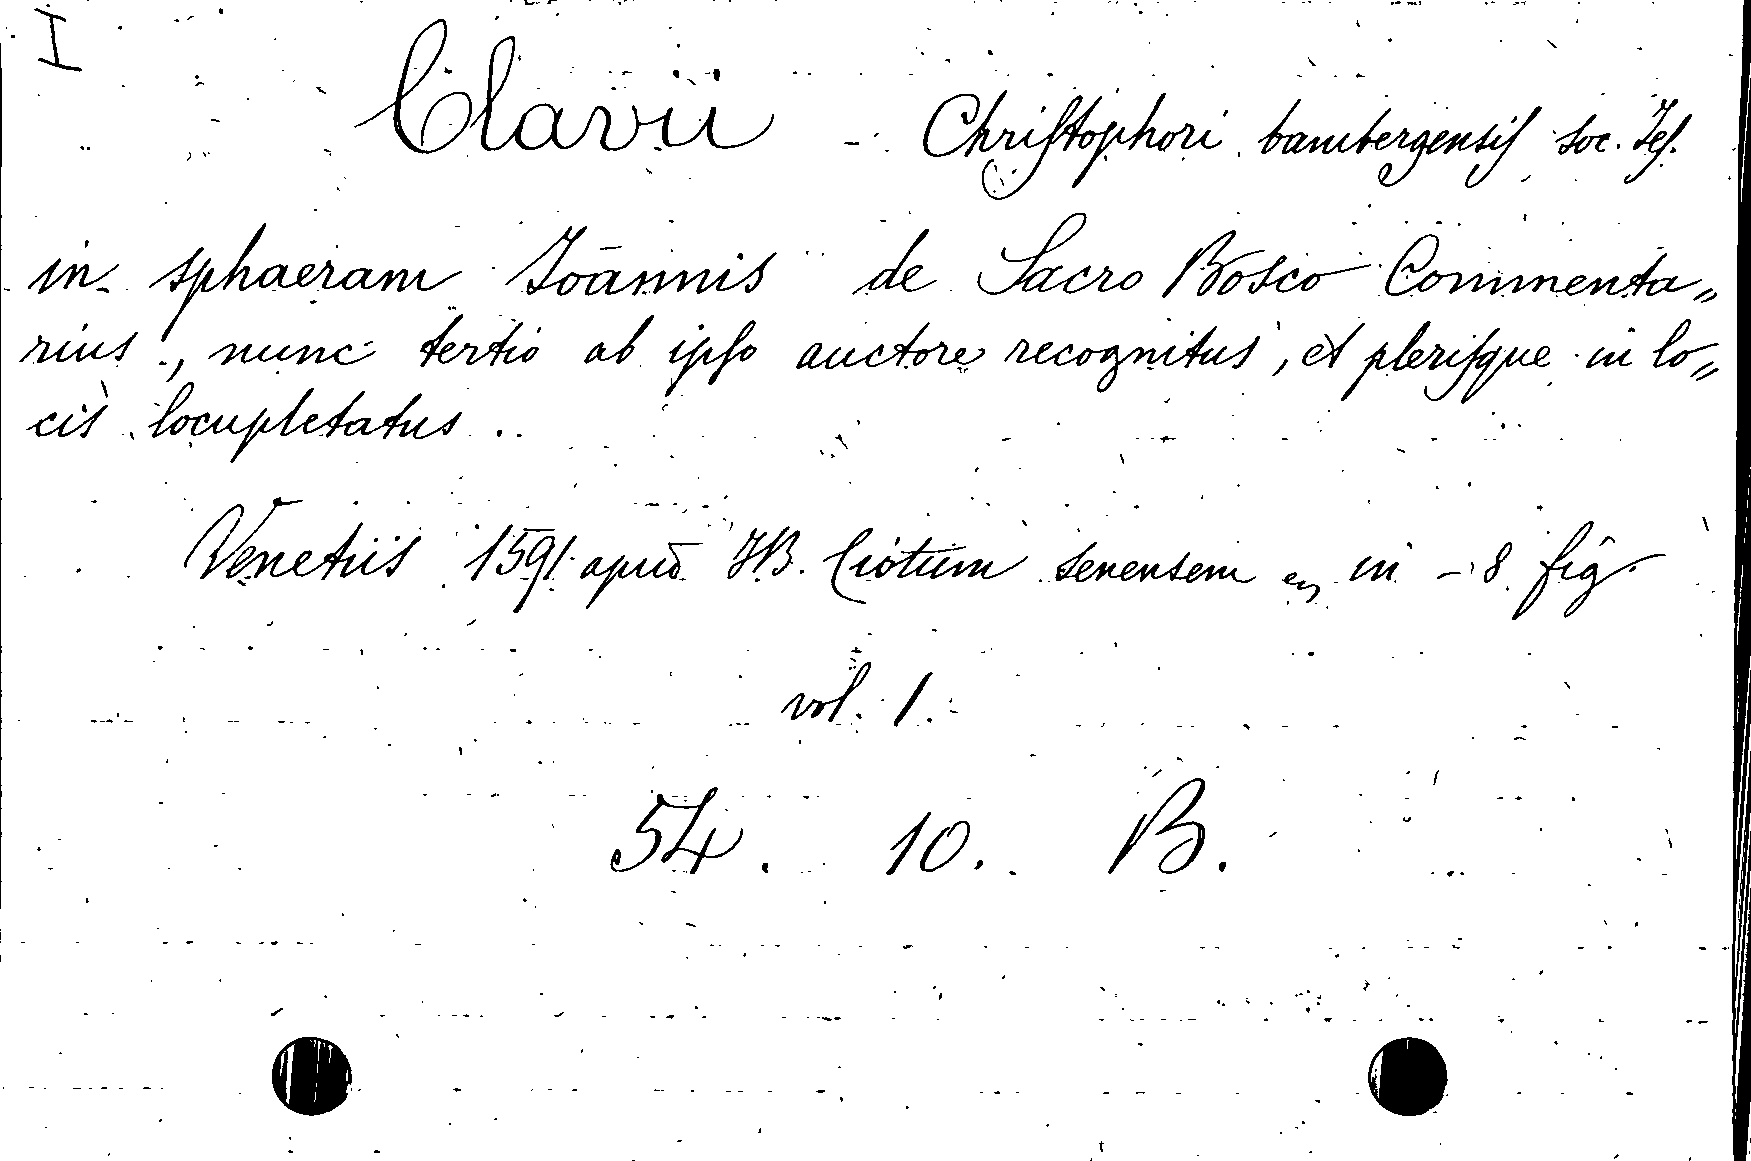 I
Clavii - Chriſtophori bambergensiſ soc. Jeſ.
in sphaeram Joānnis de Sacro Bosco Commenta„
rius, nunc tertio ab ipſo auctore recognitus, et pleriſque in lo„
cis locupletatus..
Venetiis 1591. apud JB. Ciotum senensem in - 8 fig.
vol. 1.
54. 10. B.